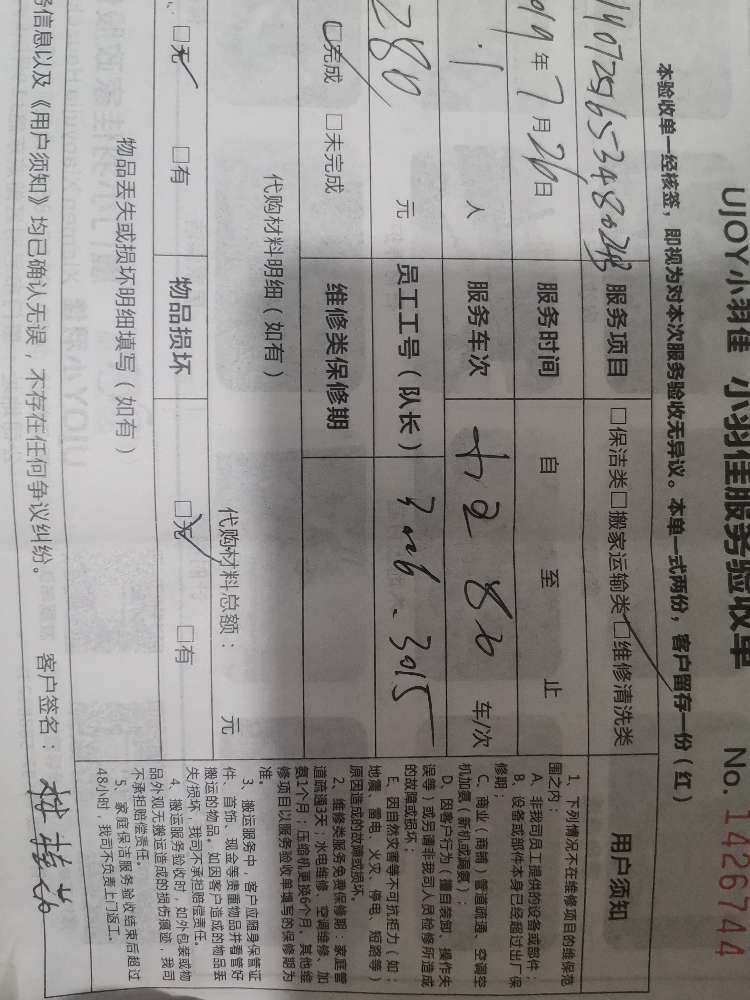 UJOY小羽佳 小羽佳服务验收单 No. 1426744
本验收单一经核签，即视为对本次服务验收无异议。本单一式两份，客户留存一份（红）
服务项目 □保洁类□搬家运输类□维修清洗类 用户须知
年7月26日 服务时间 自 至 止
1 人 服务车次 车/次
280 元 员工工号（队长） 3015
□完成 □未完成 维修类保修期
代购材料明细（如有） 代购材料总额： 元
□无 □有 物品损坏 □无 □有
物品丢失或损坏明细填写（如有）
信息以及《用户须知》均已确认无误，不存在任何争议纠纷。 客户签名：
1、下列情况不在维修项目的维保范
围之内：
A、非我司员工提供的设备或部件；
B、设备或部件本身已经超过出厂保
修期；
C、商业（商铺）管道疏通、空调空
机加氨（新机或漏氨）；
D、因客户行为（擅自装卸、操作失
误等）或另请非我司人员检修所造成
的故障或损坏；
E、因自然灾害等不可抗拒力（如：
地震、雷电、火灾、停电、短路等）
原因造成的故障或损坏。
2、维修类服务免费保修期：家庭管
道疏通3天；水电维修、空调维修、加
氨1个月；压缩机更换6个月，其他维
修项目以服务验收单填写的保修期为
准。
3、搬运服务中，客户应随身保管证
件、首饰、现金等贵重物品并看管好
搬运的物品。如因客户造成的物品丢
失/损坏，我司不承担赔偿责任。
4、搬运服务验收时，如外包装或物
品外观无搬运造成的损伤痕迹，我司
不承担赔偿责任。
5、家庭保洁服务验收结束后超过
48小时，我司不负责上门返工。